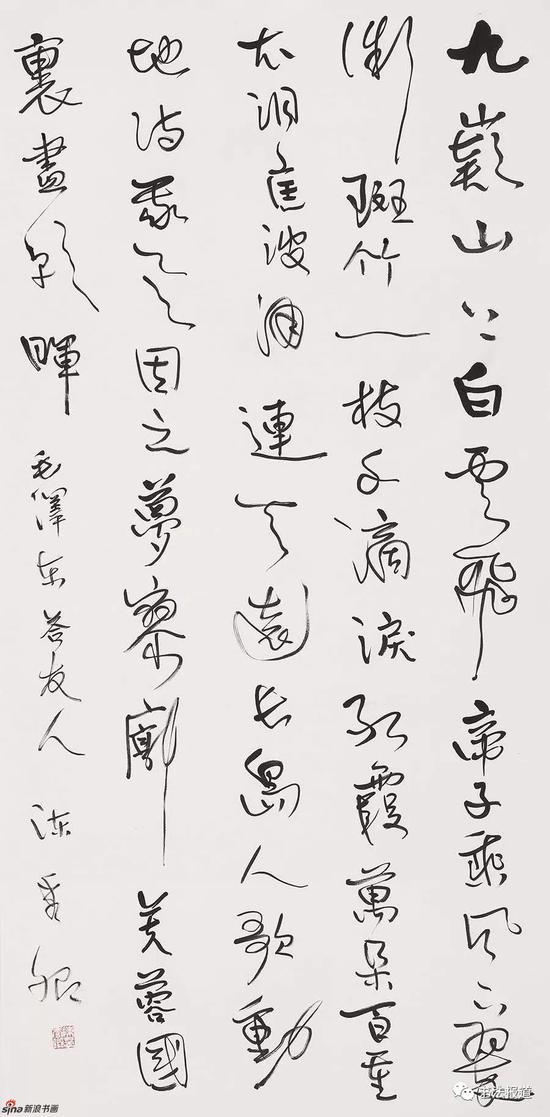 九嶷山上白雲飛帝子乘風下翠
微斑竹一枝千滴淚紅霞萬朵百重
衣洞庭波涌連天遠長島人歌動
地詩我欲因之夢寥廓芙蓉國
裏盡朝暉 毛澤東答友人
sina新浪书画
书法报道